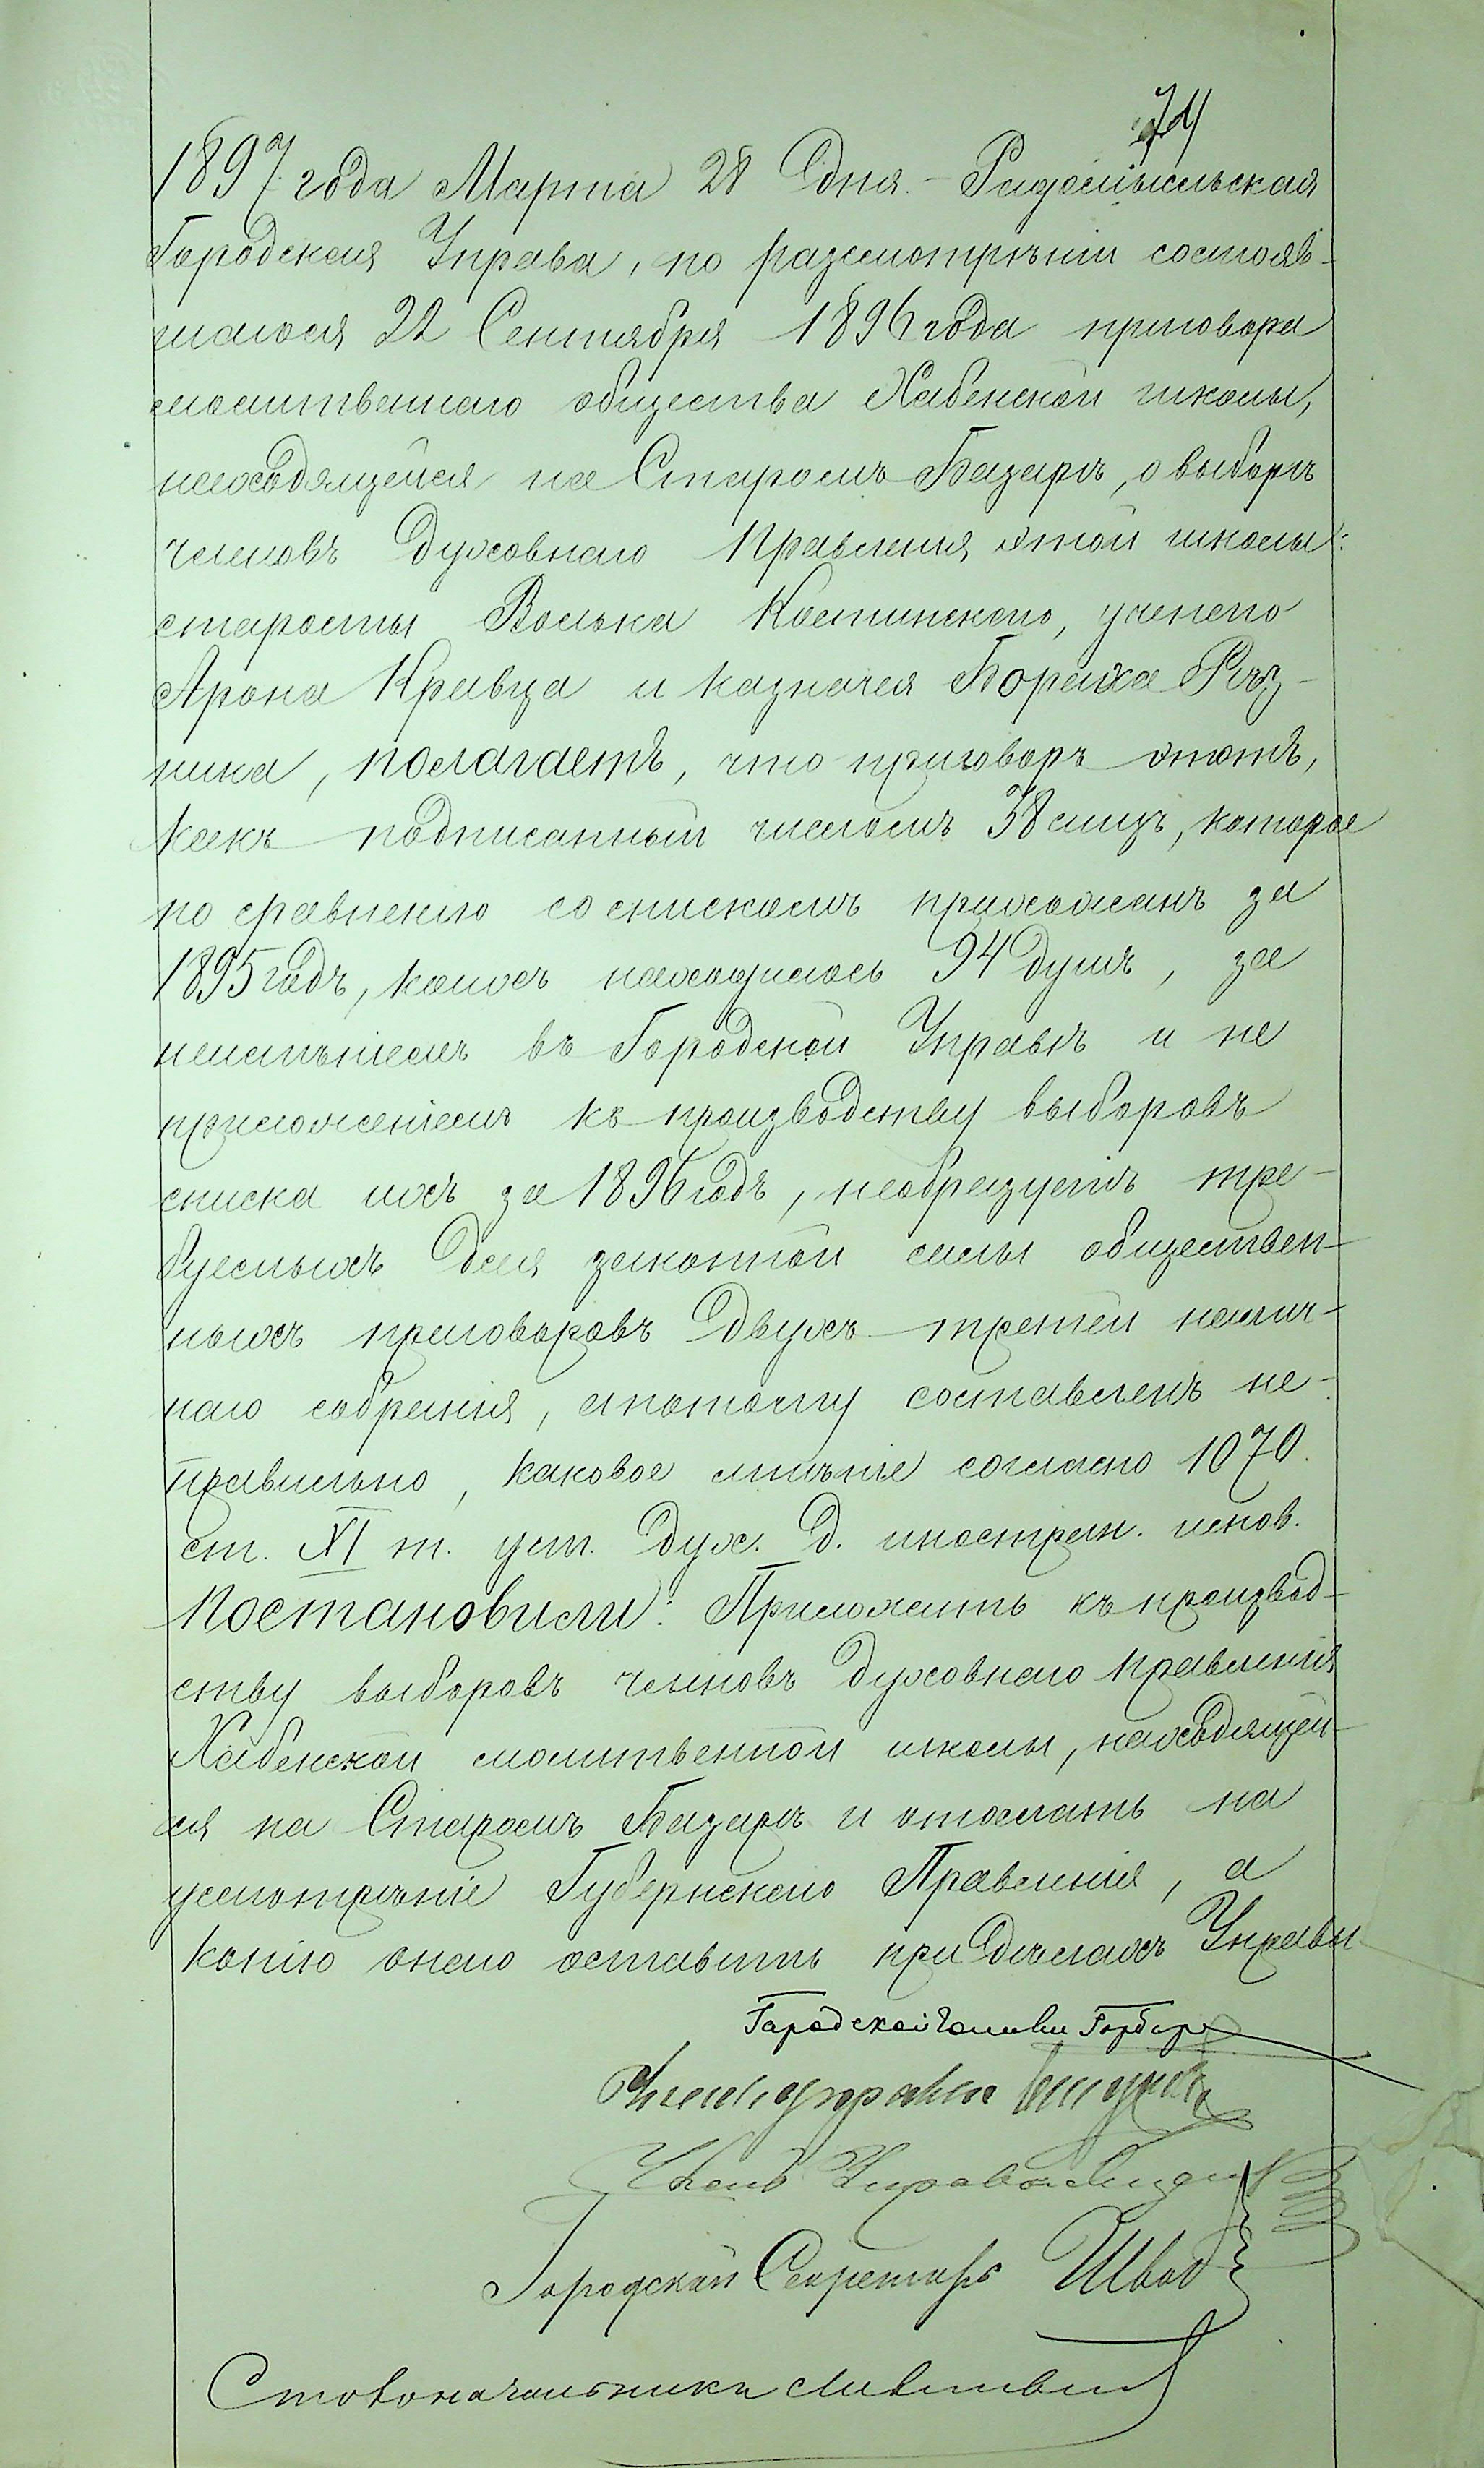 74
1897 года Марта 28 дня. – Радомысльская
Городская Управа, по разсмотрѣніи состояв-
шагося 22 Сентября 1896 года приговора
молитвеннаго общества Хабенской школы,
находящейся на Старомъ Базарѣ, о выборѣ
членовъ духовнаго правленія этой школы:
старосты Волька Костинскаго, ученаго
Арона Кравца и казначея Бораха Рѣз-
ника, полагаетъ, что приговоръ этотъ,
какъ подписанный числомъ 38 лицъ, которое
по сравненію со спискомъ прихожанъ за
1895 годъ, коихъ находилось 94 душъ, за
неимѣніемъ въ Городской Управѣ и не
приложеніемъ къ производству выборовъ
списка ихъ за 1896 годъ, необразуетъ тре-
буемыхъ для законной силы обществен-
ныхъ приговоровъ двухъ третей налич-
наго собранія, а потому составленъ не-
правильно, каковое мнѣніе согласно 1070
ст. XI т. уст. дух. д. иностран. испов.
Постановили: Приложить къ производ-
ству выборовъ членовъ духовнаго правленія
Хабенской молитвенной школы, находящей-
ся на Старомъ Базарѣ и отослать на
усмотрѣніе Губернскаго Правленія, а
копію онаго оставить при дѣлахъ Управы.
Городской Голова
Членъ управы
Членъ Управы
Городской Секретарь
Столоначальникъ